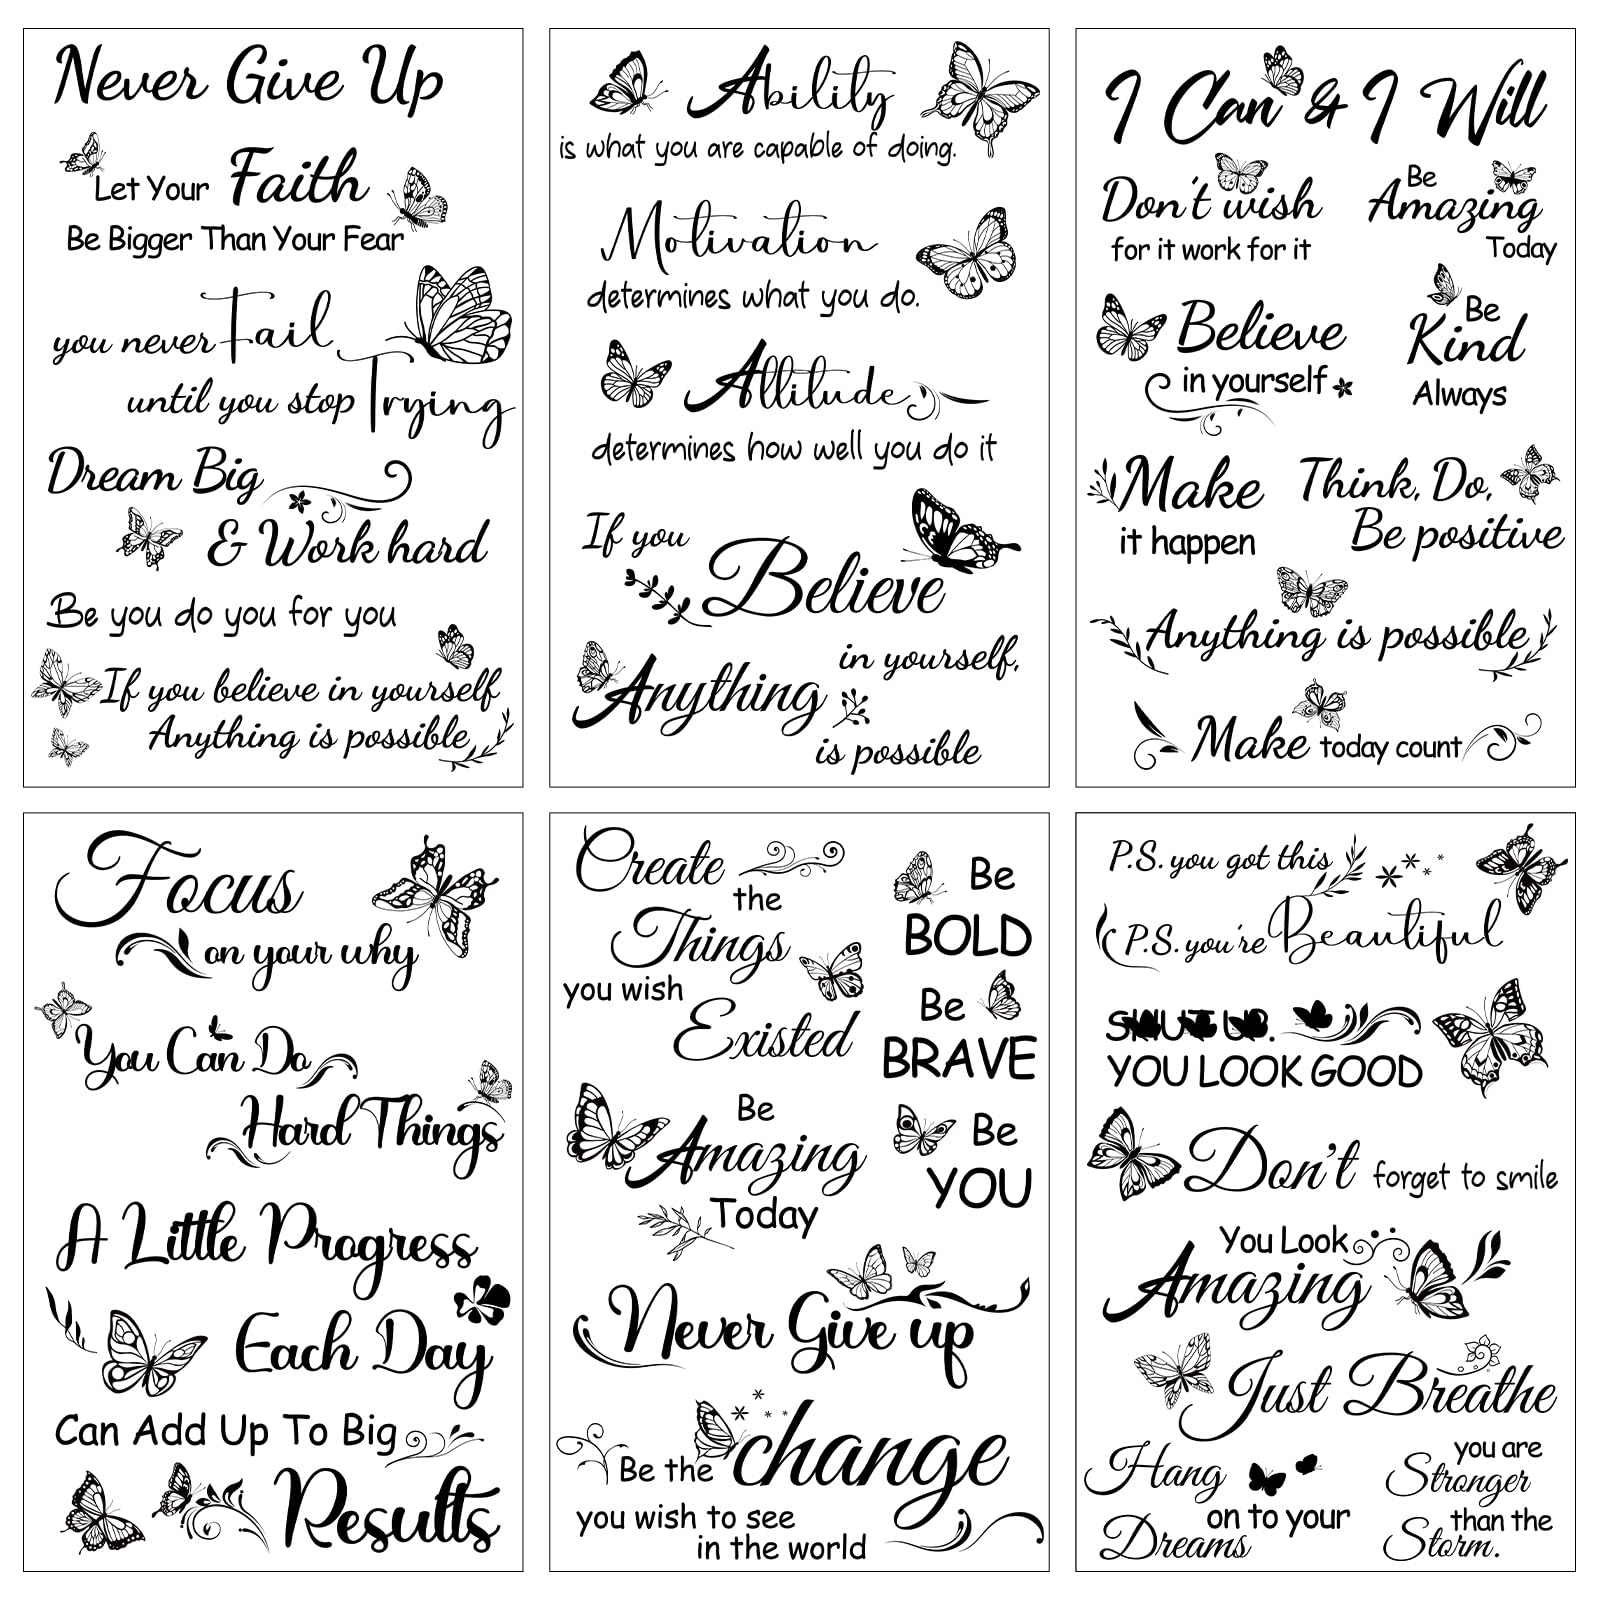 Never Give Up
Let Your Faith
Be Bigger Than Your Fear
you never Fail
until you stop Trying
Dream Big
& Work hard
Be you do you for you
If you believe in yourself
Anything is possible
Ability
is what you are capable of doing.
Motivation
determines what you do.
Attitude
determines how well you do it
If you
Believe
in yourself,
Anything
is possible
I Can & I Will
Don't wish
for it work for it
Be
Amazing
Today
Believe
in yourself
Be
Kind
Always
Make
it happen
Think, Do,
Be positive
Anything is possible
Make today count
Focus
on your why
You Can Do
Hard Things
A Little Progress
Each Day
Can Add Up To Big
Results
Create
the
Things
you wish
Existed
Be
BOLD
Be
BRAVE
Be
YOU
Be
Amazing
Today
Never Give up
Be the change
you wish to see
in the world
P.S. you got this
P.S. you're Beautiful
SHUT UP.
YOU LOOK GOOD
Don't forget to smile
You Look
Amazing
Just Breathe
Hang
on to your
Dreams
you are
Stronger
than the
Storm.